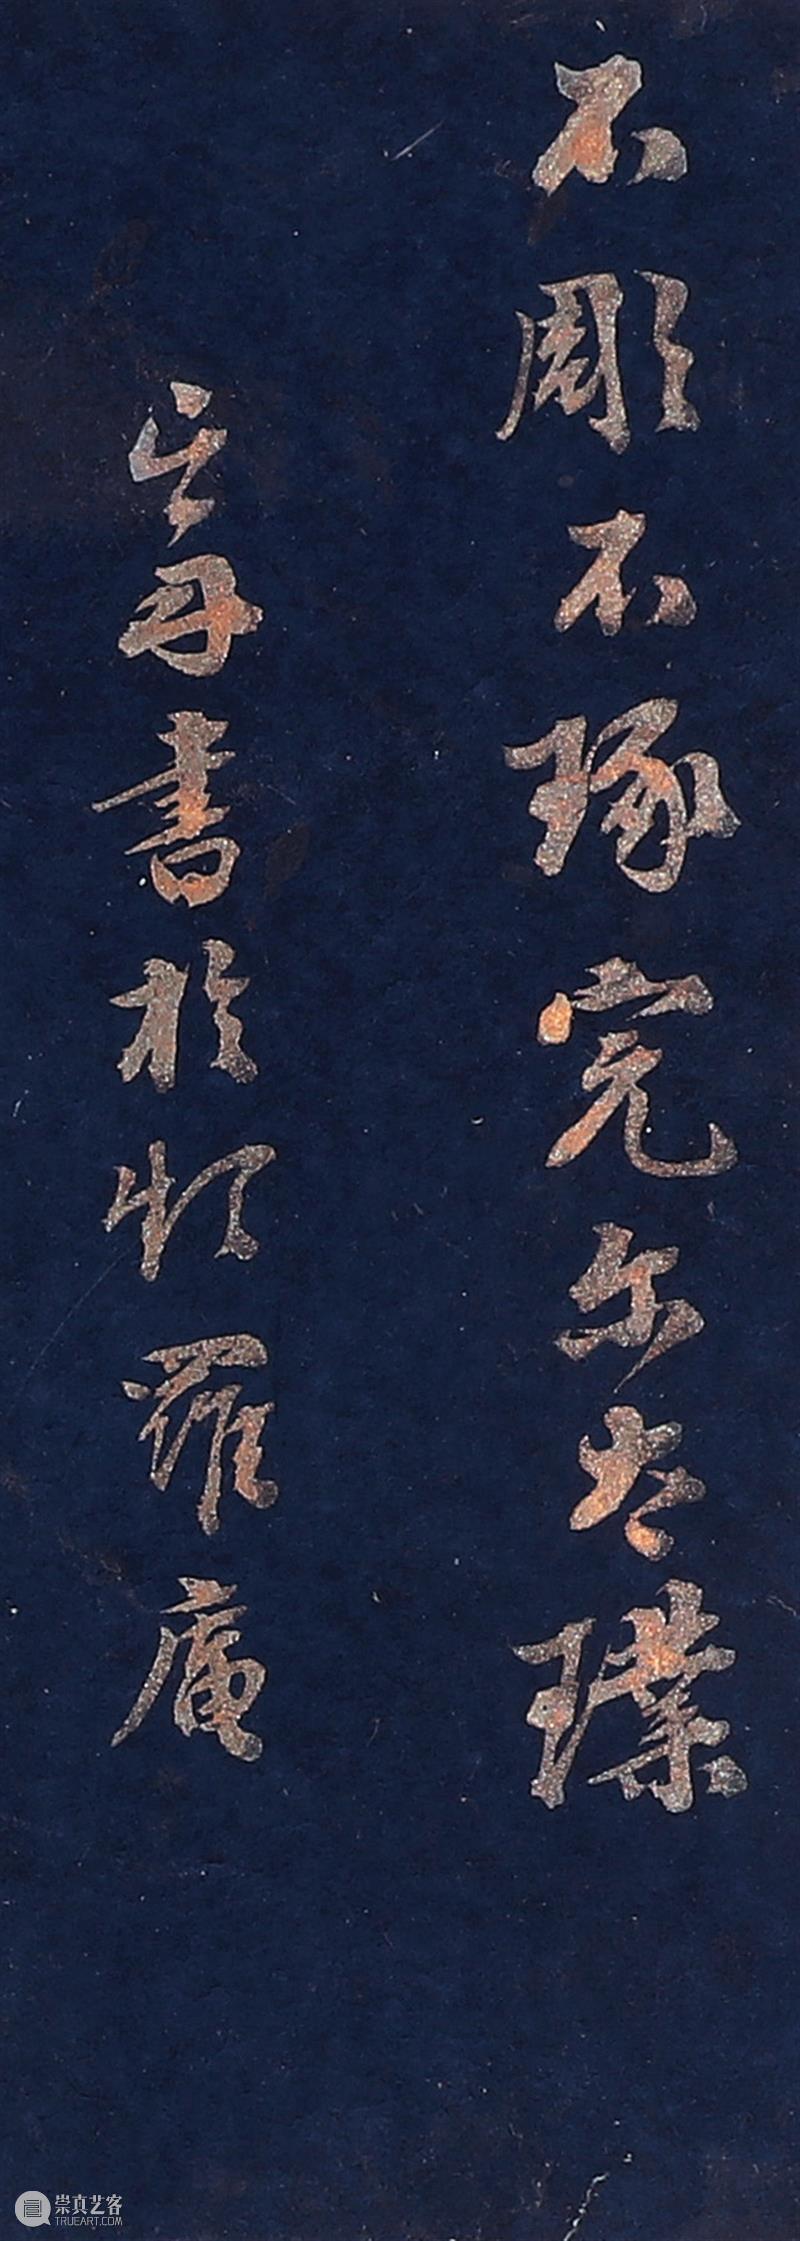 不彫不琢完尔太璞
山舟書於頻羅庵
崇真艺客
TRUEART.COM